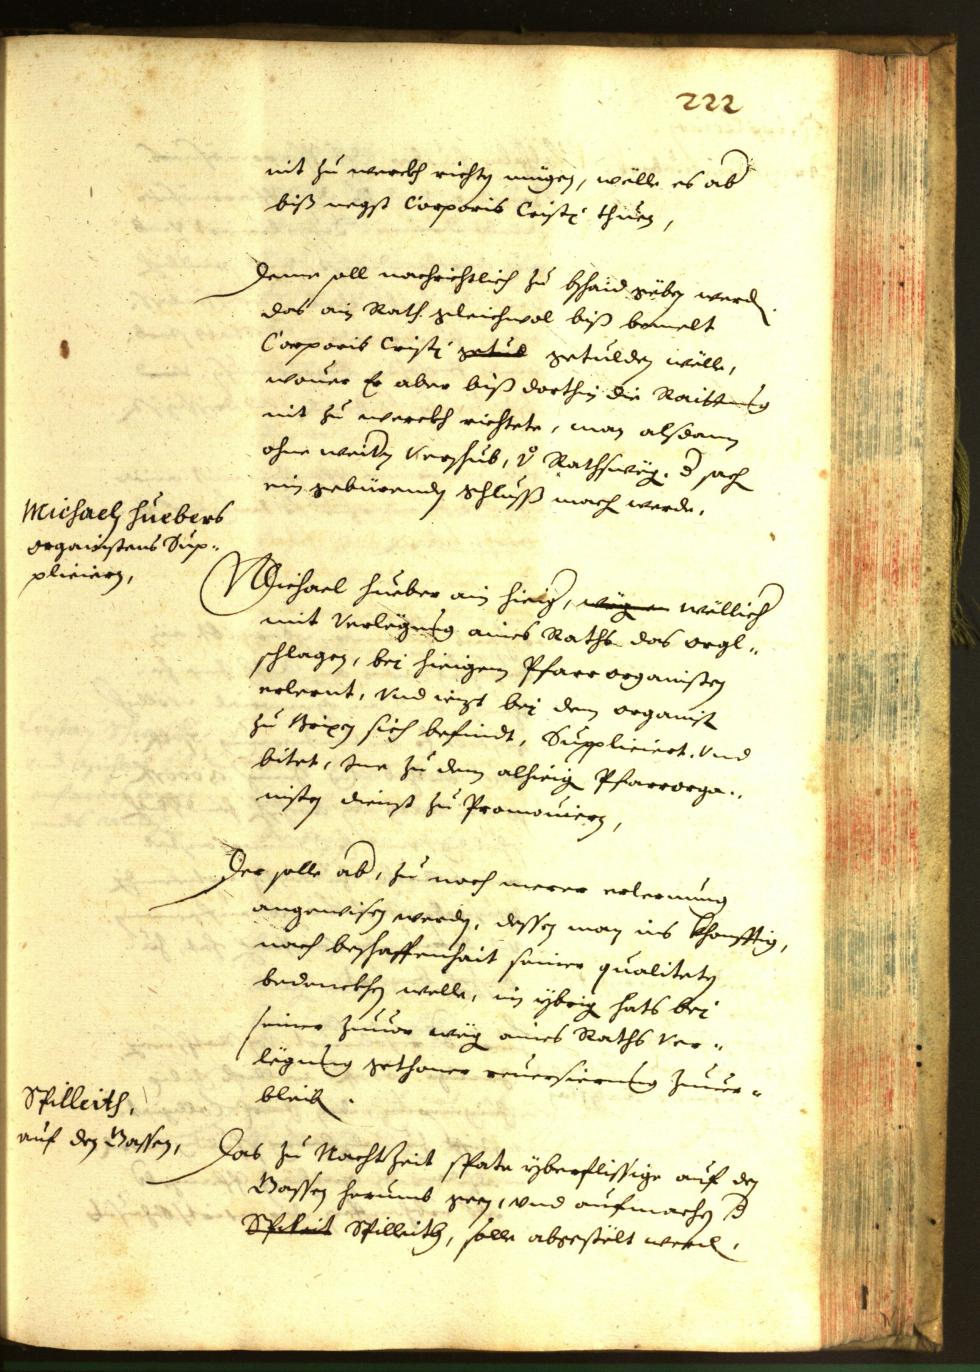 222
nit zu werckh richten mügen, wölle es aber
biß negst Corporis Cristj thuen,
Deme soll nachrichtlich zu bschaid geben werden
das ain Rath gleichwol biß bemelt
Corporis Cristj getuld getulden wölle,
wouer Er aber biß dorthin die Raittung
nit zu werckh richtete, man alsdann
ohne weitern Verschub, Rathsweg. der sach
ein gebürenden schluß mach werde.
Michaeln Huebers
organistens Sup-
plicieren,
Michael Hueber ain hieiger, wegen wöllicher
mit Verlegung aines Raths das orgl-
schlagen, bej hieigem Pfarrorganisten
erlernt, Vnd iezt bej dem organist
zu Brixen sich befindt, Suppliciert. Vnd
bitet, Ine zu dem alhieig Pfarrorga-
nisten dienst zu Promouiern,
Der solle aber, zu noch merer erlernung
angewisen werden, dessen man ins khonfftig,
nach beschaffenhait seiner qualiteten
bedenckhen welle, im ybrig hats bej
seiner zuuor weg aines Raths Ver-
legung gethaner reuersierung zuuer-
bleiben.
Spilleith,
auf den Gassen,
Das zu Nachts Zeit spate yberflissige auf den
Gassen herumb geen, vnd aufmachen der
Spileit Spilleith, solle abgestölt werden.